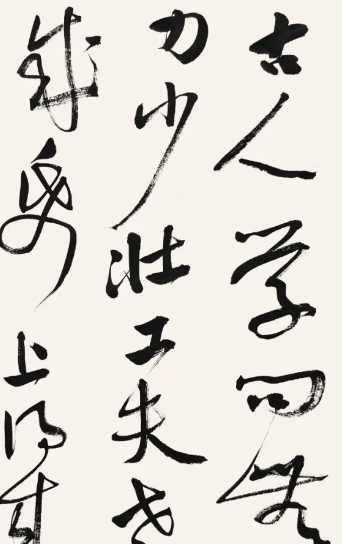 古人学问無
力少壮工夫老
成帋上得来